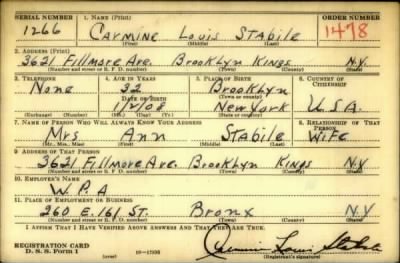 SERIAL NUMBER 1. NAME (Print) ORDER NUMBER
1266 Carmine Louis Stabile 1478
(First) (Middle) (Last)
2. ADDRESS (Print)
3621 Fillmore Ave. Brooklyn Kings N.Y.
(Number and street or R. F. D. number) (Town) (County) (State)
3. TELEPHONE 4. AGE IN YEARS 5. PLACE OF BIRTH 6. COUNTRY OF CITIZENSHIP
None 32 Brooklyn
DATE OF BIRTH (Town or county)
1/2/08 New York U.S.A.
(Exchange) (Number) (Mo.) (Day) (Yr.) (State or country)
7. NAME OF PERSON WHO WILL ALWAYS KNOW YOUR ADDRESS 8. RELATIONSHIP OF THAT PERSON
Mrs Ann Stabile Wife
(Mr., Mrs., Miss) (First) (Middle) (Last)
9. ADDRESS OF THAT PERSON
3621 Fillmore Ave. Brooklyn Kings N.Y
(Number and street or R. F. D. number) (Town) (County) (State)
10. EMPLOYER'S NAME
W.P.A
11. PLACE OF EMPLOYMENT OR BUSINESS
260 E. 161 St. Bronx N.Y
(Number and street or R. F. D. number) (Town) (County) (State)
I AFFIRM THAT I HAVE VERIFIED ABOVE ANSWERS AND THAT THEY ARE TRUE.
REGISTRATION CARD
D. S. S. Form 1 (over) Carmine Louis Stabile
(Registrant's signature)